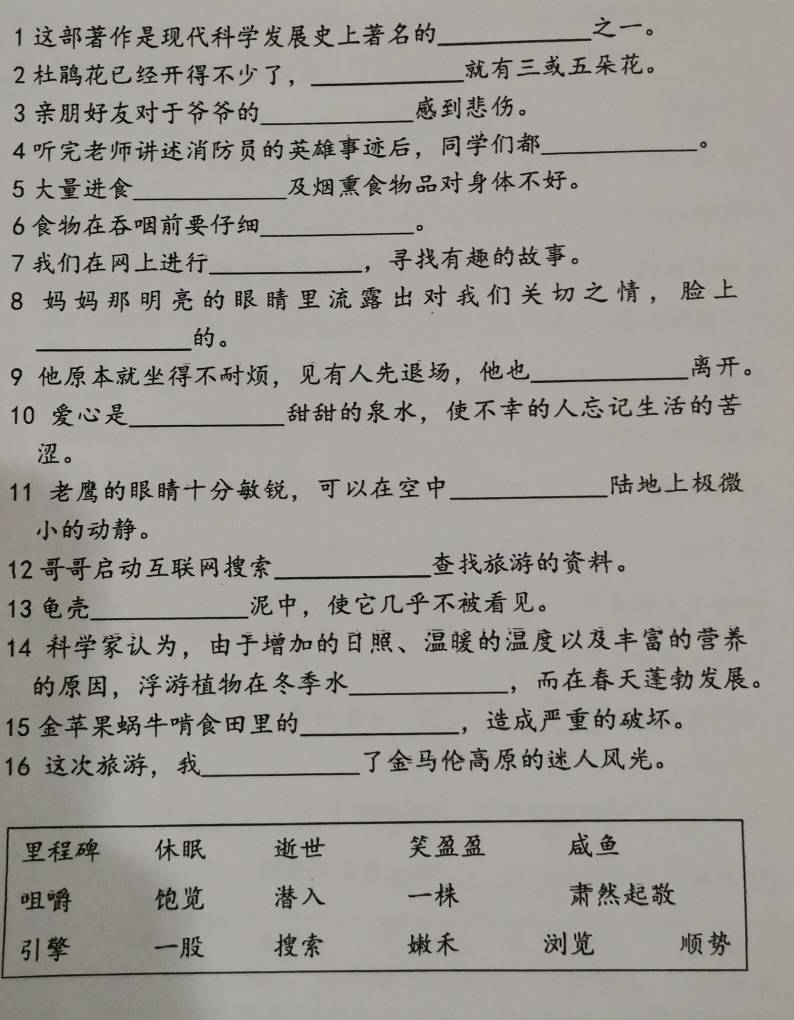 1 这部著作是现代科学发展史上著名的____________之一。
2 杜鹃花已经开得不少了，____________就有三或五朵花。
3 亲朋好友对于爷爷的____________感到悲伤。
4 听完老师讲述消防员的英雄事迹后，同学们都____________。
5 大量进食____________及烟熏食物品对身体不好。
6 食物在吞咽前要仔细____________。
7 我们在网上进行____________，寻找有趣的故事。
8 妈妈那明亮的眼睛里流露出对我们关切之情，脸上
____________的。
9 他原本就坐得不耐烦，见有人先退场，他也____________离开。
10 爱心是____________甜甜的泉水，使不幸的人忘记生活的苦
涩。
11 老鹰的眼睛十分敏锐，可以在空中____________陆地上极微
小的动静。
12 哥哥启动互联网搜索____________查找旅游的资料。
13 龟壳____________泥中，使它几乎不被看见。
14 科学家认为，由于增加的日照、温暖的温度以及丰富的营养
的原因，浮游植物在冬季水____________，而在春天蓬勃发展。
15 金苹果蜗牛啃食田里的____________，造成严重的破坏。
16 这次旅游，我____________了金马伦高原的迷人风光。
里程碑 休眠 逝世 笑盈盈 咸鱼
咀嚼 饱览 潜入 一株 肃然起敬
引擎 一股 搜索 嫩禾 浏览 顺势